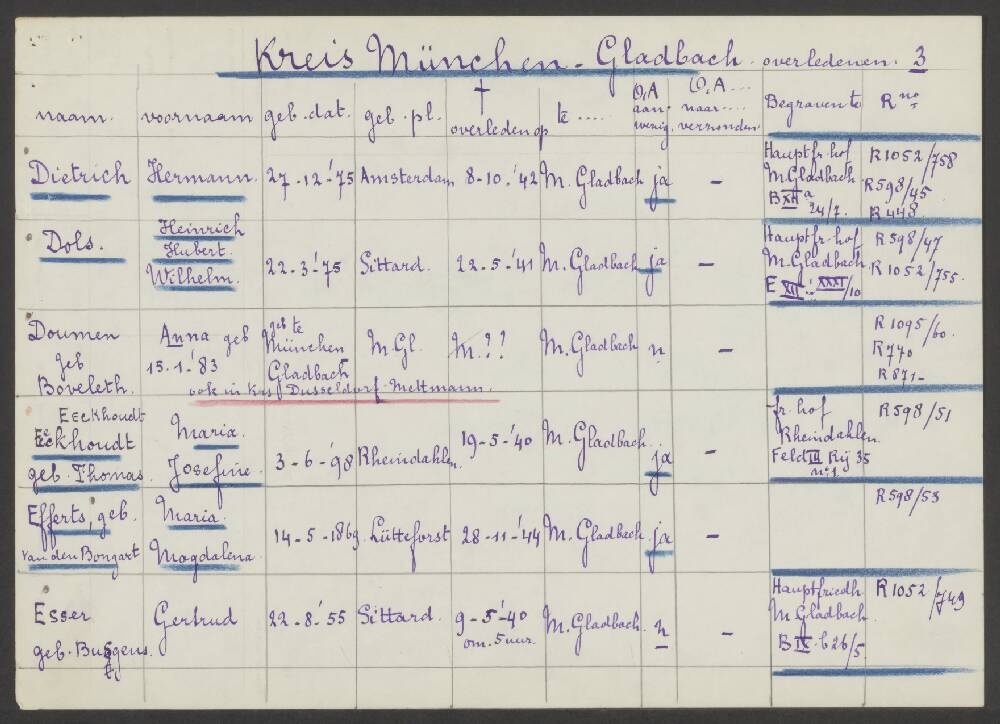 Kreis München-Gladbach. overledenen. 3
naam. voornaam geb. dat. geb. pl. † overleden op te .... O,A aan- wezig. O,A ... naar .... verzonden. Begraven te R no.
Dietrich Hermann. 27-12-'75 Amsterdam 8-10-'42 M. Gladbach ja -
Hauptfr. hof
M. Gladbach
B XII a
24/7.
R 1052/758
R 598/45
R 448
Dols. Heinrich
Hubert.
Wilhelm. 22-3-'75 Sittard. 22-5-'41 M. Gladbach ja -
Hauptfr. hof
M. Gladbach
E XII : XXXI/10
R 598/47
R 1052/755.
Doumen
geb
Boveleth.
Anna geb
15-1-'83
geb te
München
Gladbach
M. Gl. M. ?? M. Gladbach n -
ook in krs Dusseldorf-Mettmann.
R 1095/60.
R 740
R 871-
Eeckhoudt
Eeckhoudt
geb. Thomas.
Maria.
Josefine.
3-6-'98 Rheindahlen. 19-5-'40 M. Gladbach. ja -
fr. hof
Rheindahlen.
Feld III Rij 35
no. 1
R 598/51
Efferts, geb.
van den Bongart
Maria.
Magdalena
14-5-1869 Lütteforst 28-11-'44 M. Gladbach. ja -
R 598/53
Esser
geb. Busgens.
Gertrud 22-8-'55 Sittard. 9-5-'40
om. 5 uur.
M. Gladbach. n -
Hauptfriedh
M. Gladbach
B IX. b 26/5
R 1052/749